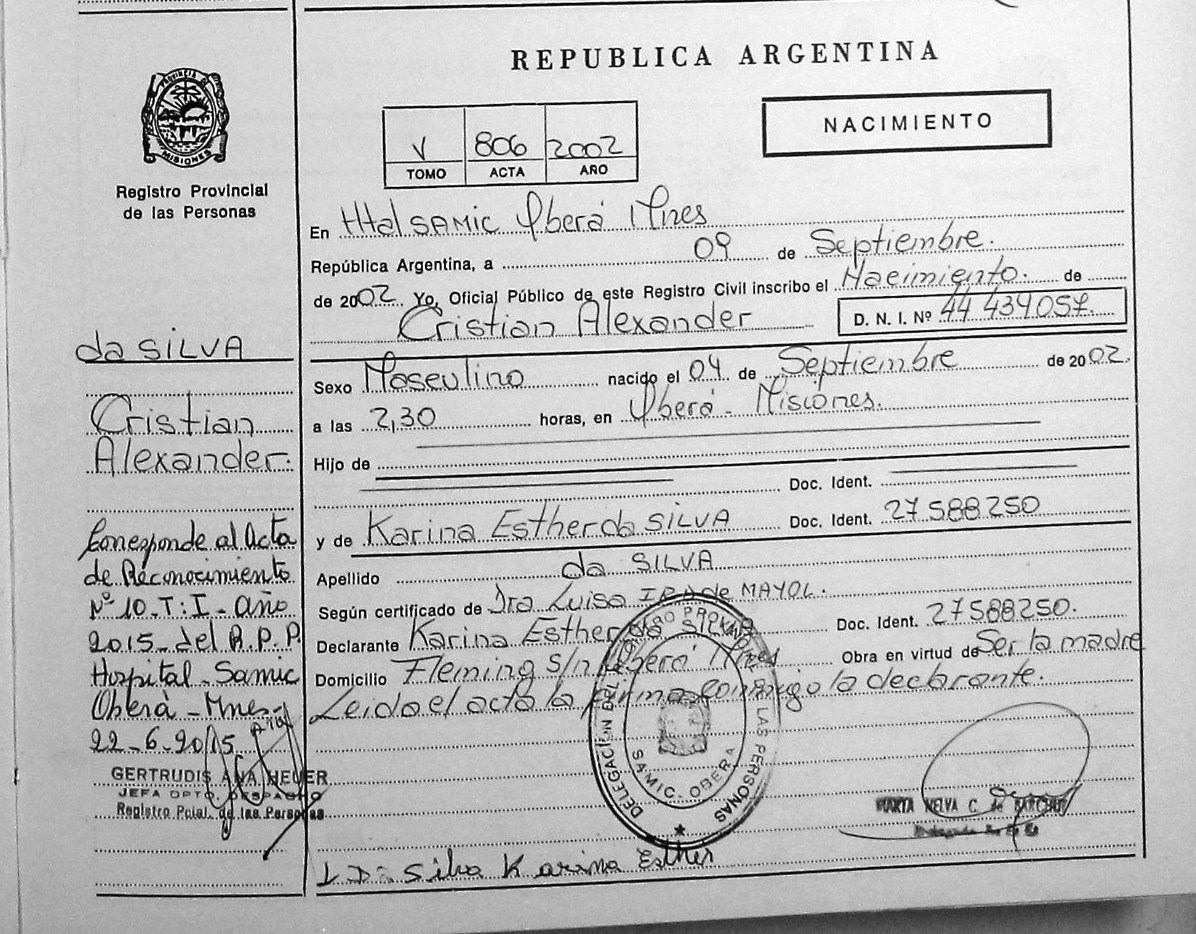 REPUBLICA ARGENTINA
PROVINCIA DE
MISIONES
Registro Provincial
de las Personas
V 806 2002
TOMO ACTA AÑO
NACIMIENTO
En Htal SAMIC Oberá Mnes
República Argentina, a 09 de Septiembre.
de 2002 Yo, Oficial Público de este Registro Civil inscribo el Nacimiento. de
Cristian Alexander D. N. I. Nº 44 439.057.
Sexo Masculino nacido el 04 de Septiembre de 2002.
a las 2,30 horas, en Oberá - Misiones.
Hijo de
Doc. Ident.
y de Karina Esther da SILVA Doc. Ident. 27588250
Apellido da SILVA
Según certificado de Dra Luisa de MAYOL.
Declarante Karina Esther da SILVA Doc. Ident. 27588250.
Domicilio Fleming s/n Oberá Mnes Obra en virtud de Ser la madre
Leida el acta la firma conmigo la declarante.
da SILVA
Cristian
Alexander.
Corresponde al Acta
de Reconocimiento
Nº 10 - T: I - año
2015 - del R.P.P.
Hospital - Samic
Oberá - Mnes
22-6-2015
GERTRUDIS ANA HEUER
JEFA DPTO. DESPACHO
Registro Pcial. de las Personas
DELEGACION DEL REGISTRO PROVINCIAL DE LAS PERSONAS
SAMIC - OBERA
MARTA NELVA C. de
Da Silva Karina Esther